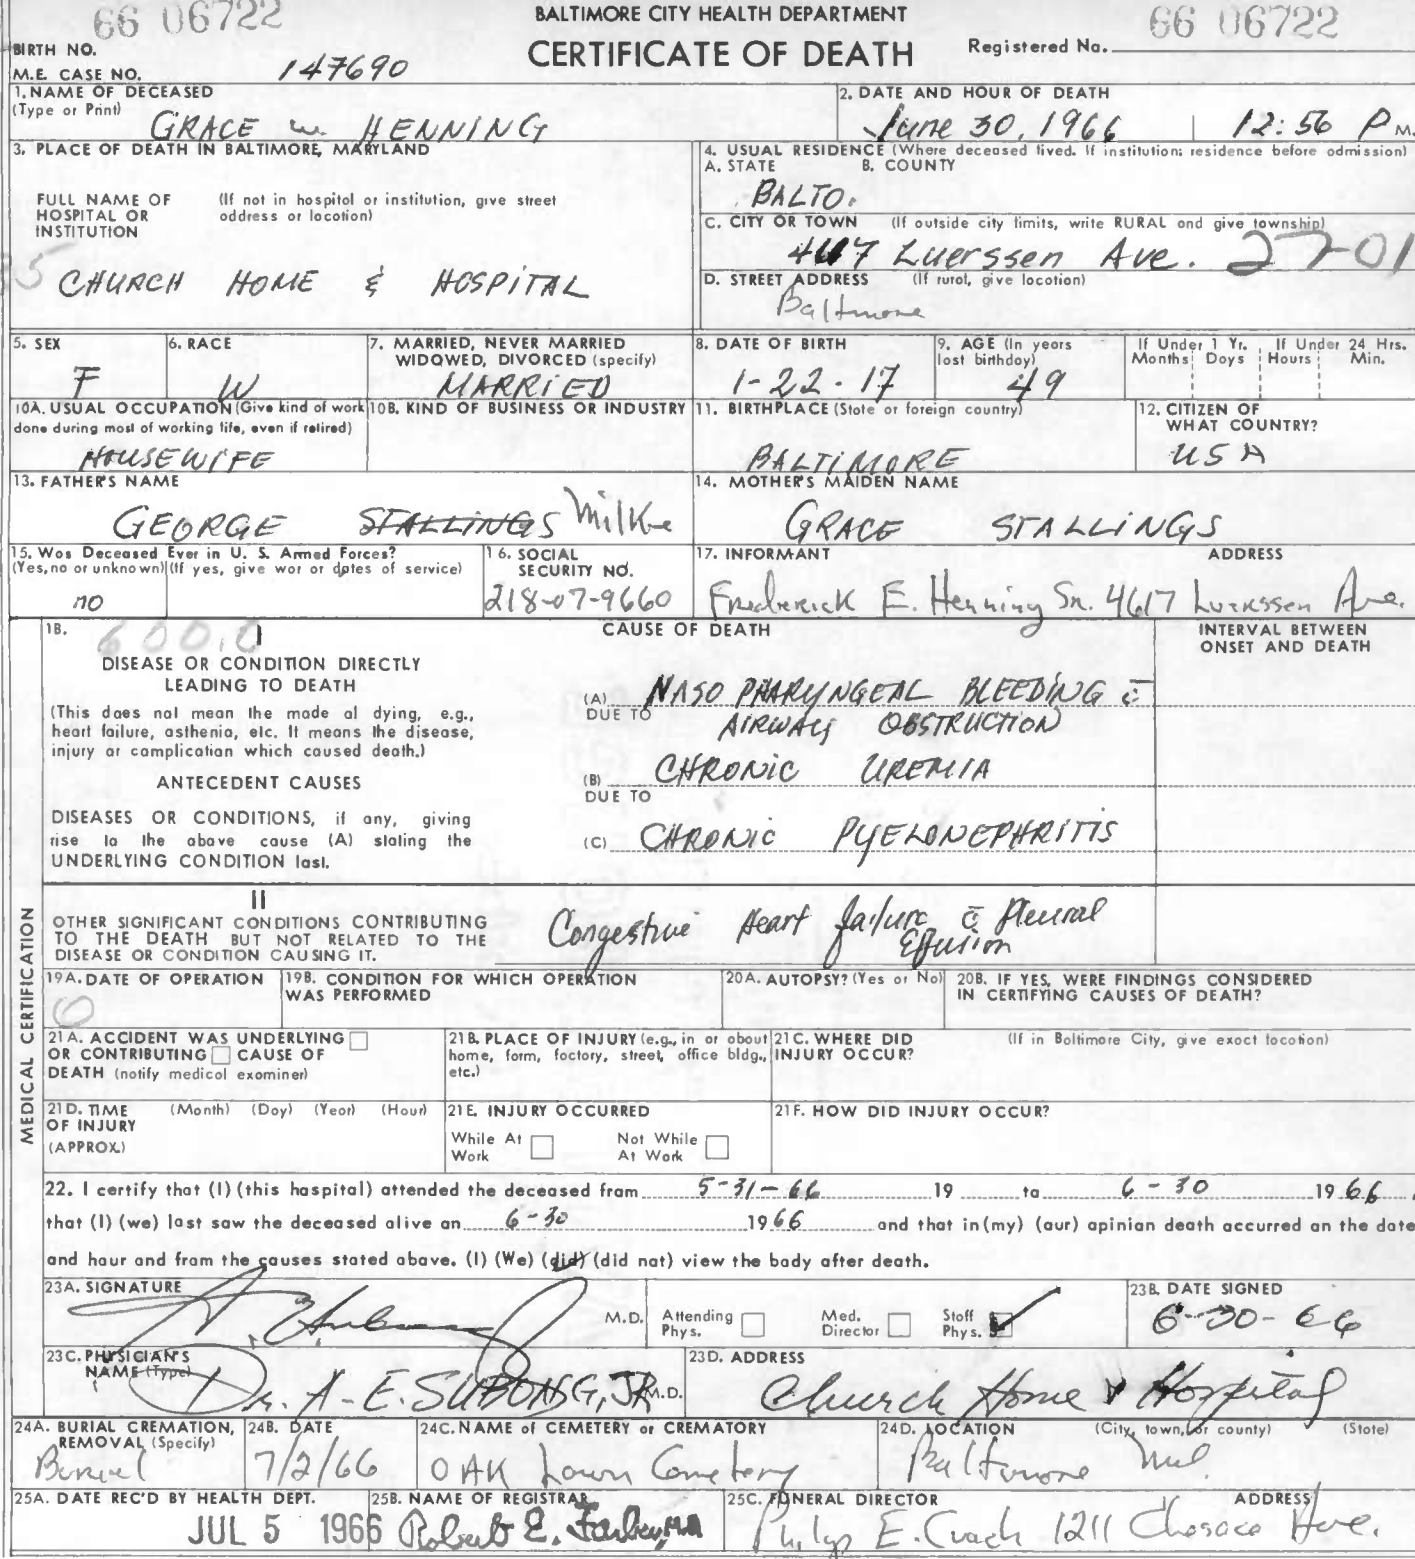 66 06722
BALTIMORE CITY HEALTH DEPARTMENT
66 06722
BIRTH NO.
CERTIFICATE OF DEATH
Registered No.
M.E. CASE NO. 147690
1. NAME OF DECEASED
(Type or Print)
GRACE W. HENNING
2. DATE AND HOUR OF DEATH
June 30, 1966 12:56 P M.
3. PLACE OF DEATH IN BALTIMORE, MARYLAND
FULL NAME OF HOSPITAL OR INSTITUTION
(If not in hospital or institution, give street address or location)
CHURCH HOME & HOSPITAL
4. USUAL RESIDENCE (Where deceased lived. If institution: residence before admission)
A. STATE B. COUNTY
BALTO.
C. CITY OR TOWN (If outside city limits, write RURAL and give township)
Luerssen Ave. 27-01
D. STREET ADDRESS (If rural, give location)
Baltimore
5. SEX
F
6. RACE
W
7. MARRIED, NEVER MARRIED
WIDOWED, DIVORCED (specify)
MARRIED
8. DATE OF BIRTH
1-22-17
9. AGE (In years
last birthday)
49
If Under 1 Yr.
Months Days
If Under 24 Hrs.
Hours Min.
10A. USUAL OCCUPATION (Give kind of work
done during most of working life, even if retired)
HOUSEWIFE
10B. KIND OF BUSINESS OR INDUSTRY
11. BIRTHPLACE (State or foreign country)
BALTIMORE
12. CITIZEN OF
WHAT COUNTRY?
USA
13. FATHER'S NAME
GEORGE STALLINGS Milke
14. MOTHER'S MAIDEN NAME
GRACE STALLINGS
15. Was Deceased Ever in U. S. Armed Forces?
(Yes, no or unknown) (If yes, give war or dates of service)
no
16. SOCIAL
SECURITY NO.
218-07-9660
17. INFORMANT ADDRESS
Frederick E. Henning Sr. 4617 Luerssen Ave.
MEDICAL CERTIFICATION
18. 600.0
I
DISEASE OR CONDITION DIRECTLY
LEADING TO DEATH
(This does not mean the mode of dying, e.g.,
heart failure, asthenia, etc. It means the disease,
injury or complication which caused death.)
ANTECEDENT CAUSES
DISEASES OR CONDITIONS, if any, giving
rise to the above cause (A) stating the
UNDERLYING CONDITION last.
CAUSE OF DEATH
INTERVAL BETWEEN
ONSET AND DEATH
(A) NASO PHARYNGEAL BLEEDING c̄
DUE TO AIRWAY OBSTRUCTION
(B) CHRONIC UREMIA
DUE TO
(C) CHRONIC PYELONEPHRITIS
II
OTHER SIGNIFICANT CONDITIONS CONTRIBUTING
TO THE DEATH BUT NOT RELATED TO THE
DISEASE OR CONDITION CAUSING IT.
Congestive Heart failure c̄ Pleural
Effusion
19A. DATE OF OPERATION
19B. CONDITION FOR WHICH OPERATION
WAS PERFORMED
20A. AUTOPSY? (Yes or No)
20B. IF YES, WERE FINDINGS CONSIDERED
IN CERTIFYING CAUSES OF DEATH?
21A. ACCIDENT WAS UNDERLYING
OR CONTRIBUTING CAUSE OF
DEATH (notify medical examiner)
21B. PLACE OF INJURY (e.g., in or about
home, farm, factory, street, office bldg.,
etc.)
21C. WHERE DID
INJURY OCCUR?
(If in Baltimore City, give exact location)
21D. TIME (Month) (Day) (Year) (Hour)
OF INJURY
(APPROX.)
21E. INJURY OCCURRED
While At Work
Not While At Work
21F. HOW DID INJURY OCCUR?
22. I certify that (I) (this hospital) attended the deceased from 5-31-66 19 to 6-30 1966
that (I) (we) last saw the deceased alive on 6-30 1966 and that in (my) (our) opinion death occurred on the date
and hour and from the causes stated above. (I) (We) (did) (did not) view the body after death.
23A. SIGNATURE
M.D.
Attending Phys.
Med. Director
Staff Phys.
23B. DATE SIGNED
6-30-66
23C. PHYSICIAN'S
NAME (Type)
Dr. A-E. SUBONG, JR M.D.
23D. ADDRESS
Church Home & Hospital
24A. BURIAL CREMATION,
REMOVAL (Specify)
Burial
24B. DATE
7/2/66
24C. NAME of CEMETERY or CREMATORY
OAK Lawn Cemetery
24D. LOCATION (City, town, or county) (State)
Baltimore Md.
25A. DATE REC'D BY HEALTH DEPT.
JUL 5 1966
25B. NAME OF REGISTRAR
Robert E. Farber, MD
25C. FUNERAL DIRECTOR ADDRESS
E. 1211 Chesaco Ave.